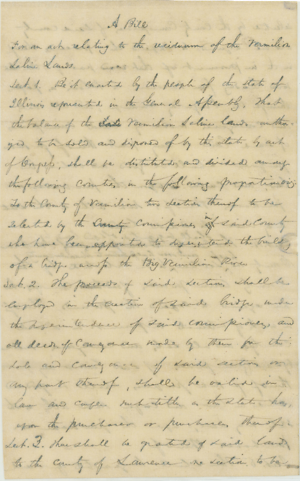 A Bill
For an act relating to the residuum of the Vermilion
Saline Lands.
Sect. 1. Be it enacted by the people of the State of
Illinois represented in the General Assembly, That
the balance of the Vermilion Saline lands author
ized to be sold and disposed of by the state, by act
of Congress, shall be distributed and divided among
the following counties, in the following proportions
To the County of Vermilion two sections thereof to be
selected by the County commissioners of said County
who have been appointed to superintend the building
of a bridge across the Big Vermilion River
Sect. 2. The proceeds of said section, shall be
employed in the erection of said bridge under
the superintendence of said commissioners, and
all deeds of Conveyance made by them for the
sale and conveyance of said section or
any part thereof, shall be valid in
law and
upon the purchaser or purchasers thereof.
Sect. 3. There shall be granted of said lands
to the county of Lawrence section to be